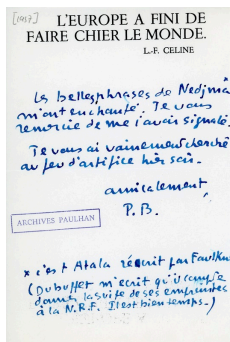 [1957]
L'EUROPE A FINI DE
FAIRE CHIER LE MONDE.
L.-F. CELINE
Les belles phrases de Nedjma
m'ont enchanté. Je vous
remercie de me l'avoir signalé.
Je vous ai vainement cherché
au feu d'artifice hier soir.
amicalement
P. B.
ARCHIVES PAULHAN
x c'est Atala récrit par Faulkner
(Dubuffet m'écrit qu'il compte
donner la suite de ses empreintes
à la N.R.F. Il est bien temps.)